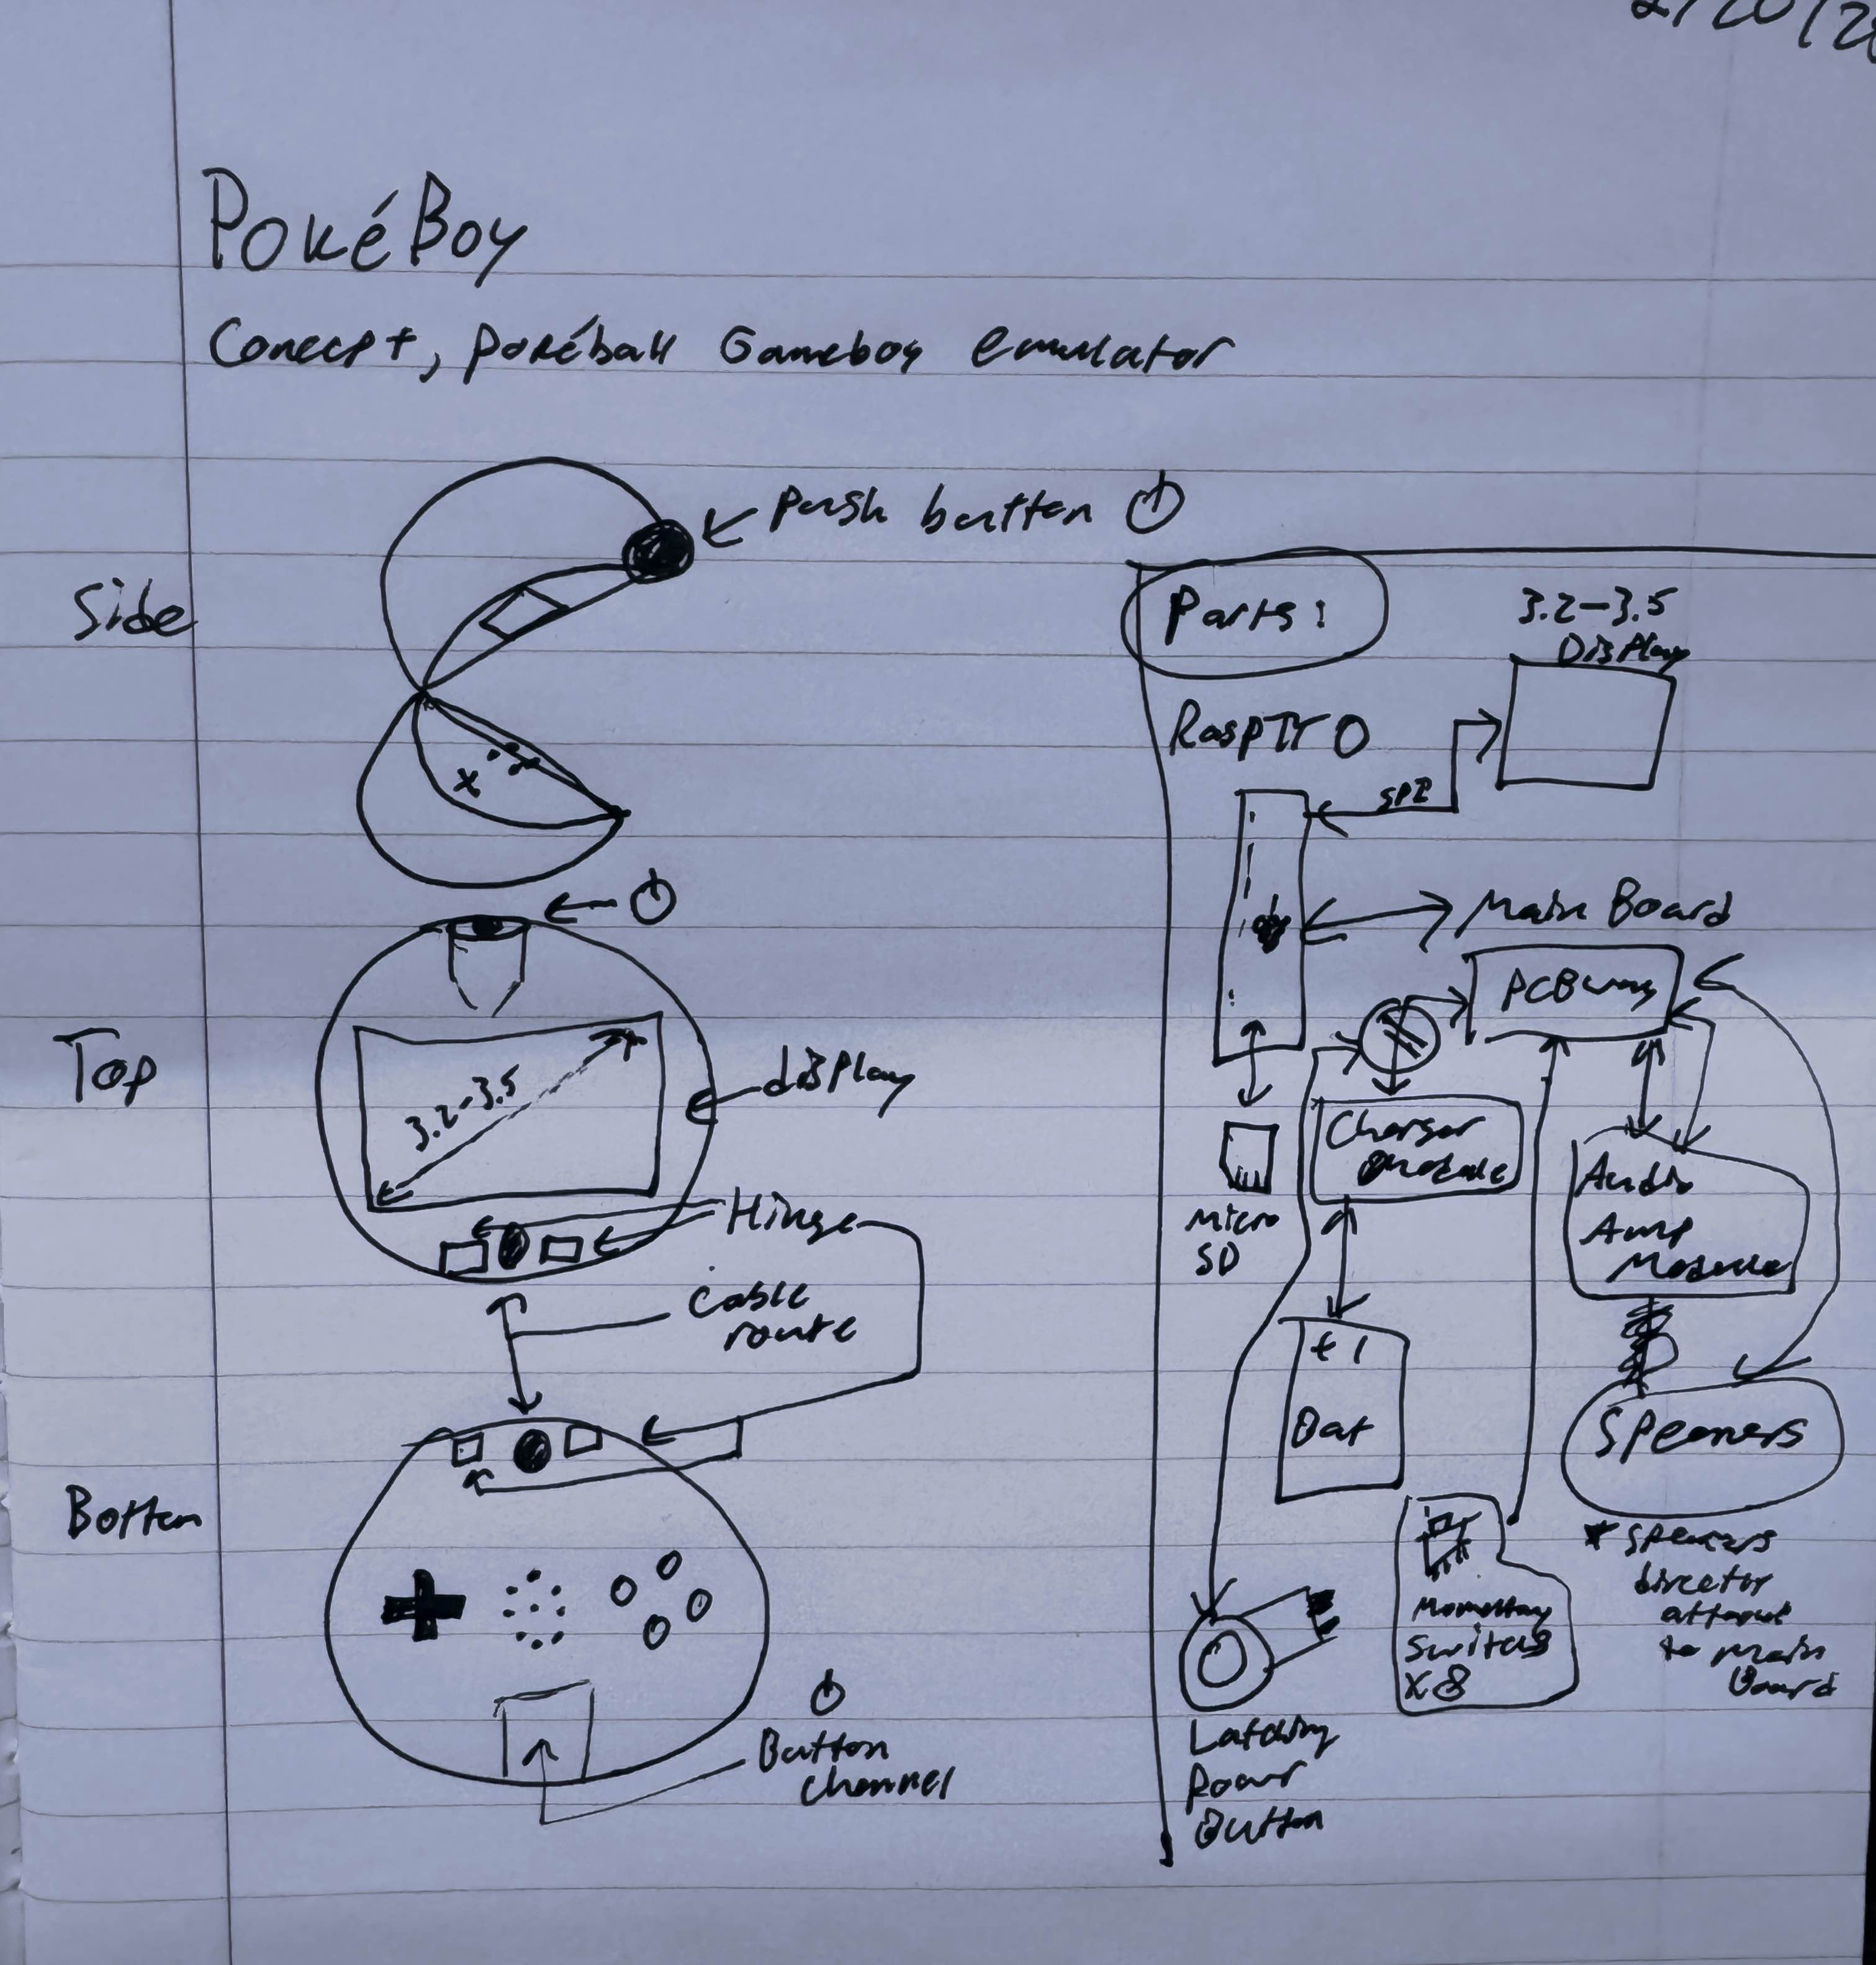 2/20/2
PokéBoy
Concept, pokéball Gameboy emulator
Side
Push button
Parts:
3.2-3.5
Display
SPI
Main Board
PCBway
Top
3.2-3.5
display
Charger
Module
Micro
SD
Audio
Amp
Module
Hinge
Cable
route
+ -
Bat
Speakers
Botton
* Speakers
attach
to main
Board
Momentary
Switches
x8
Button
Channel
Latching
Power
Button